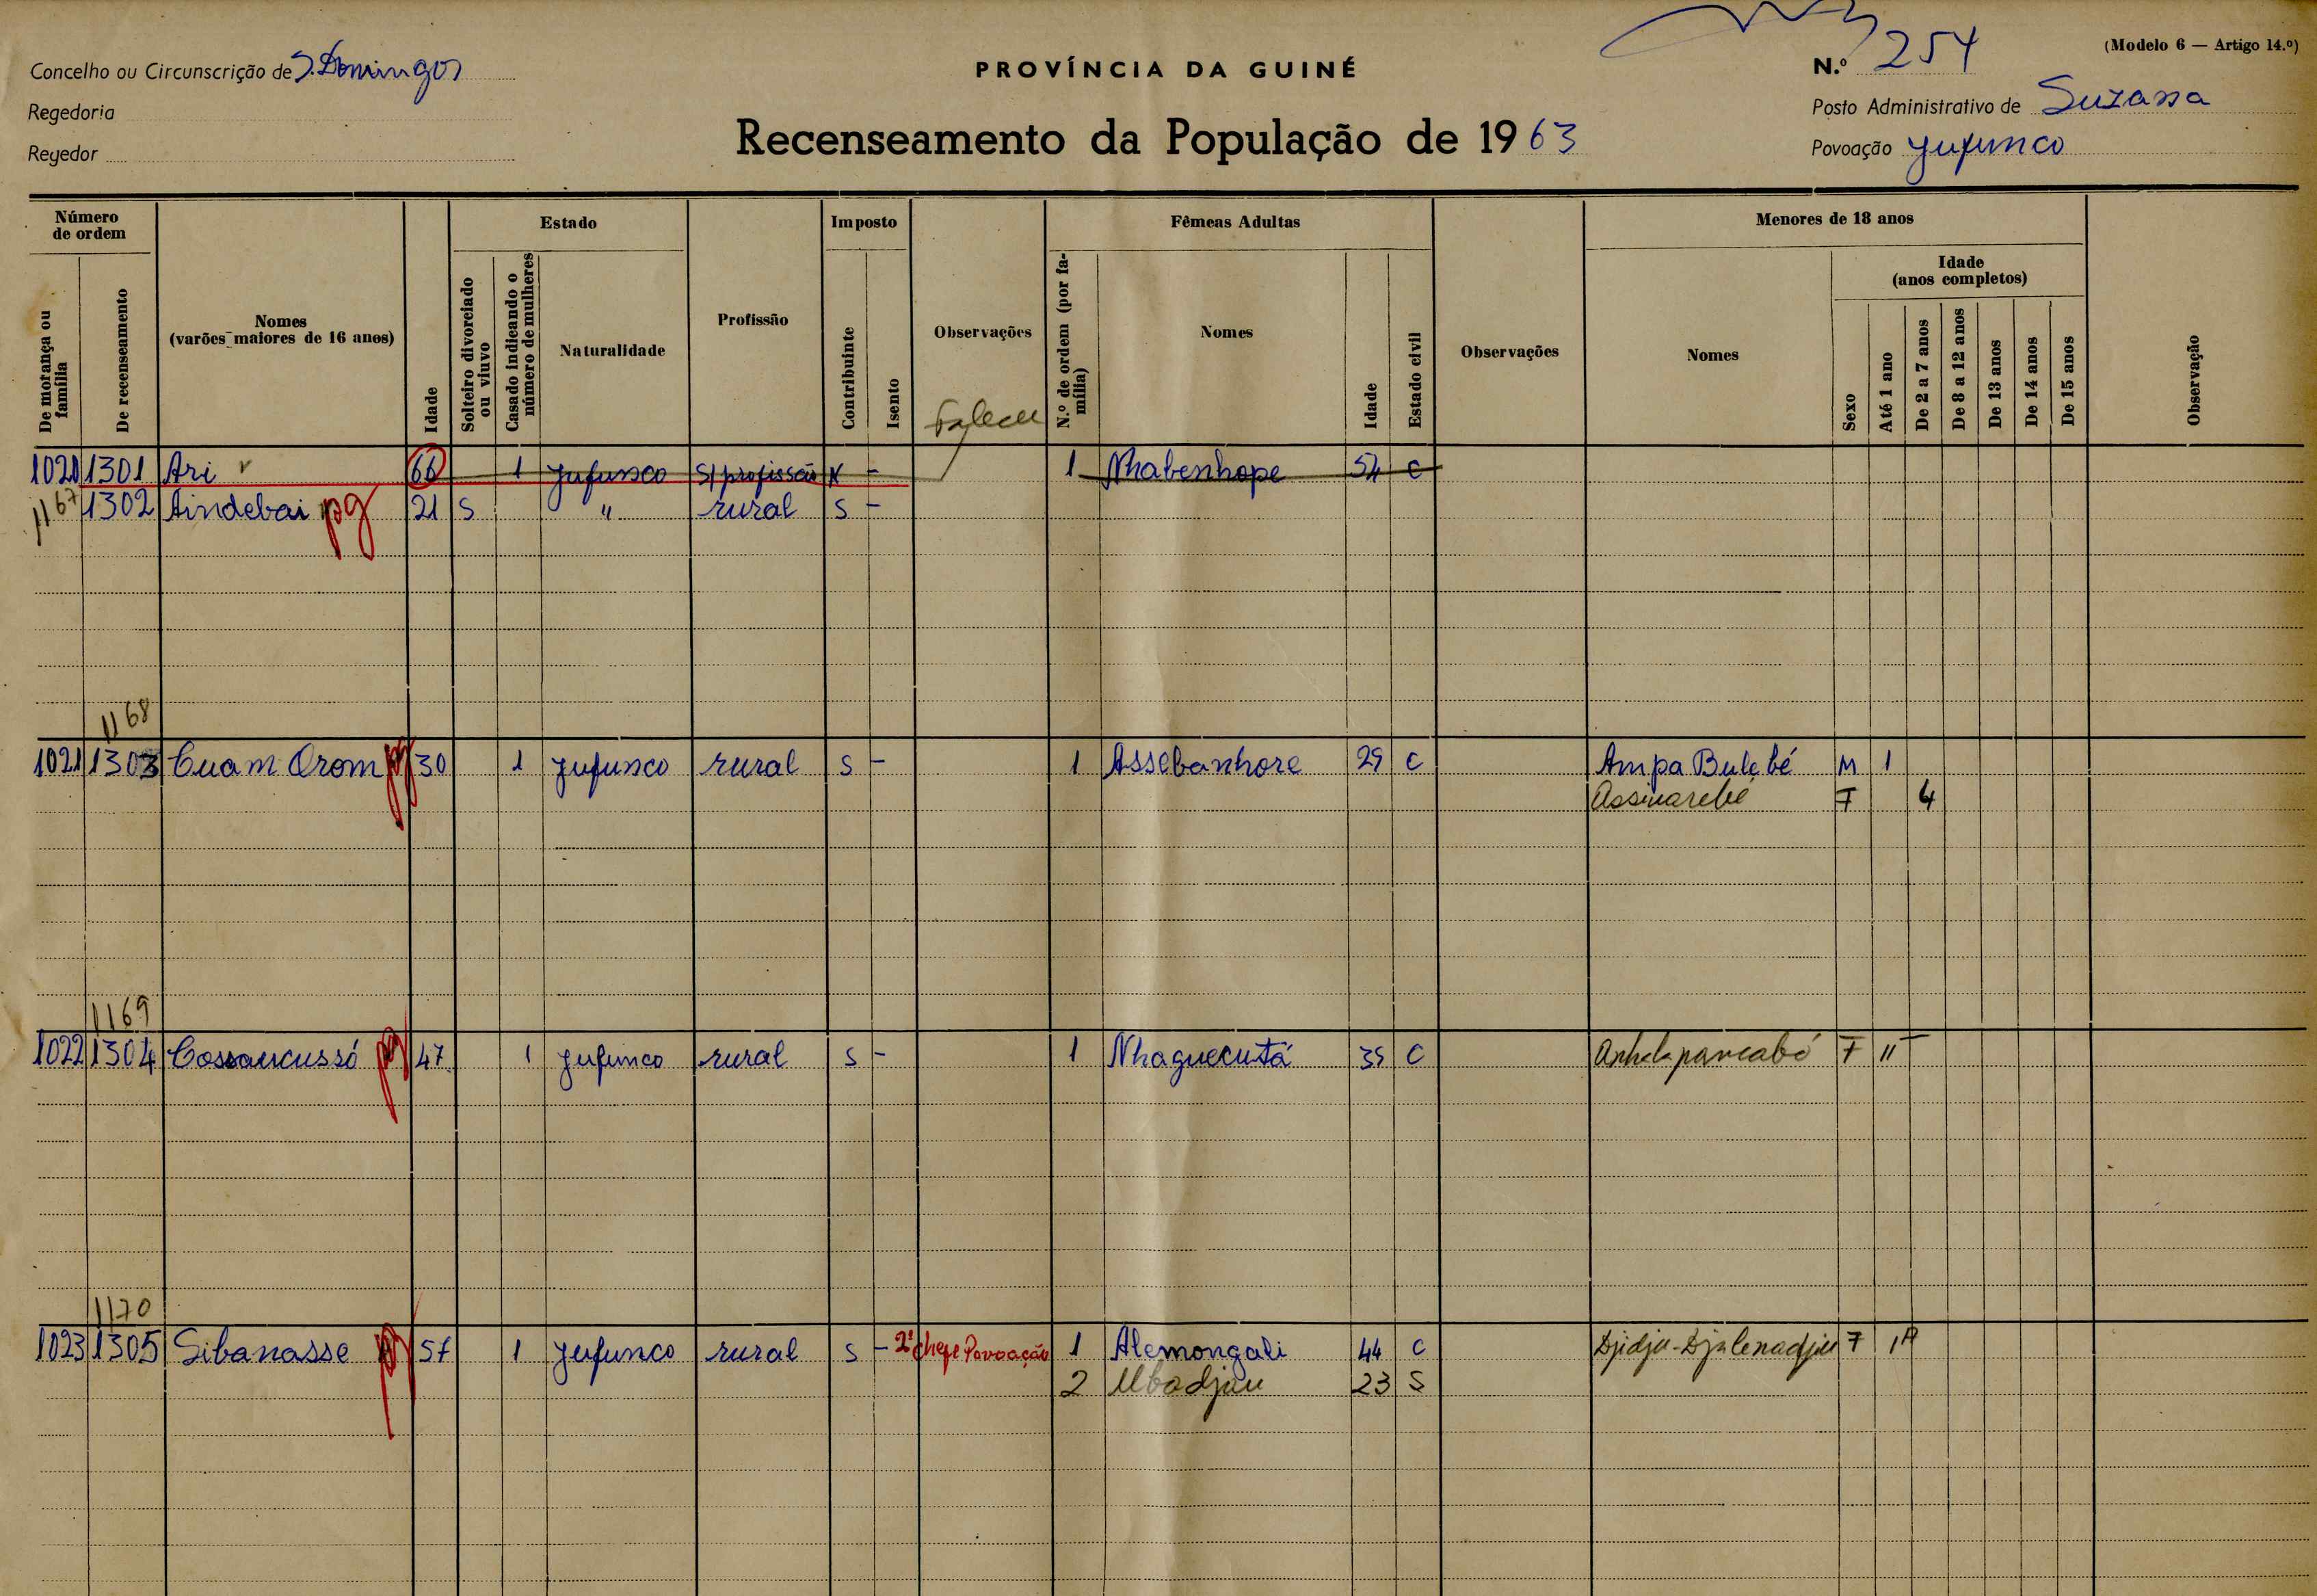 (Modelo 6 — Artigo 14.º)
Concelho ou Circunscrição de S. Domingos
PROVÍNCIA DA GUINÉ
N.º 254
Regedoria
Posto Administrativo de Suzana
Recenseamento da População de 1963
Regedor
Povoação Jufunco
Número de ordem
De morança ou família
De recenseamento
Nomes
(varões maiores de 16 anos)
Idade
Estado
Solteiro divorciado ou viuvo
Casado indicando o número de mulheres
Naturalidade
Profissão
Imposto
Contribuinte
Isento
Observações
Fêmeas Adultas
N.º de ordem (por família)
Nomes
Idade
Estado civil
Observações
Menores de 18 anos
Nomes
Sexo
Idade
(anos completos)
Até 1 ano
De 2 a 7 anos
De 8 a 12 anos
De 13 anos
De 14 anos
De 15 anos
Observação
Faleceu
1020 1301 Ari 66 1 Jufunco S/ profissão N - 1 Nhabenhope 54 C
1167 1302 Aindebai pg 21 S " rural S -
1168
1021 1303 Cuam Orom pg 30 1 Jufunco rural S - 1 Assebanhore 29 C Ampa Bulebé M 1
Assinarebé F 4
1169
1022 1304 pg 47 1 Jufunco rural S - 1 Nhaguecutá 35 C F 11
1170
1023 1305 Sibanasse pg 51 1 Jufunco rural S - 2º chefe Povoação 1 Alemongali 44 C Djidju-Djalenadju F
2 Ubadjau 23 S